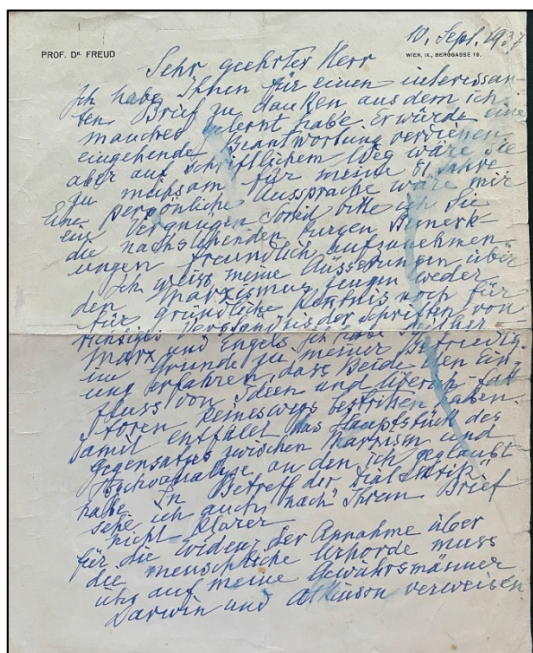 10. Sept. 1937
PROF. DR. FREUD
WIEN, IX., BERGGASSE 19.
Sehr geehrter Herr
Ich habe Ihnen für einen interessan-
ten Brief zu danken aus dem ich
manches gelernt habe. Er würde eine
eingehende Beantwortung verdienen
aber auf schriftlichem Weg wäre sie
zu mühsam für meine 81 Jahre
Eine persönliche Aussprache wäre mir
ein Vergnügen bitte ich Sie
die nachstehenden kurzen Bemerk-
ungen freundlich aufzunehmen.
Ich weiss meine Äusserungen über
den Marxismus zeugen weder
für gründliche Kentnis noch für
richtiges Verständnis der Schriften von
Marx und Engels. Ich habe seither
im Grunde zu meiner Befriedig-
ung erfahren, dass beide den Ein-
fluss von Ideen und Überich-fak
toren keineswegs bestritten haben.
Damit entfällt das Hauptstück des
Gegensatzes zwischen Marxism und
Psychoanalyse, an den ich geglaubt
habe. In Betreff der "Dialektik"
sehe ich auch nach Ihrem Brief
nicht klarer
für die Annahme über
die menschliche Urhorde muss
ich auf meine Gewährsmänner
Darwin und Atkinson verweisen.